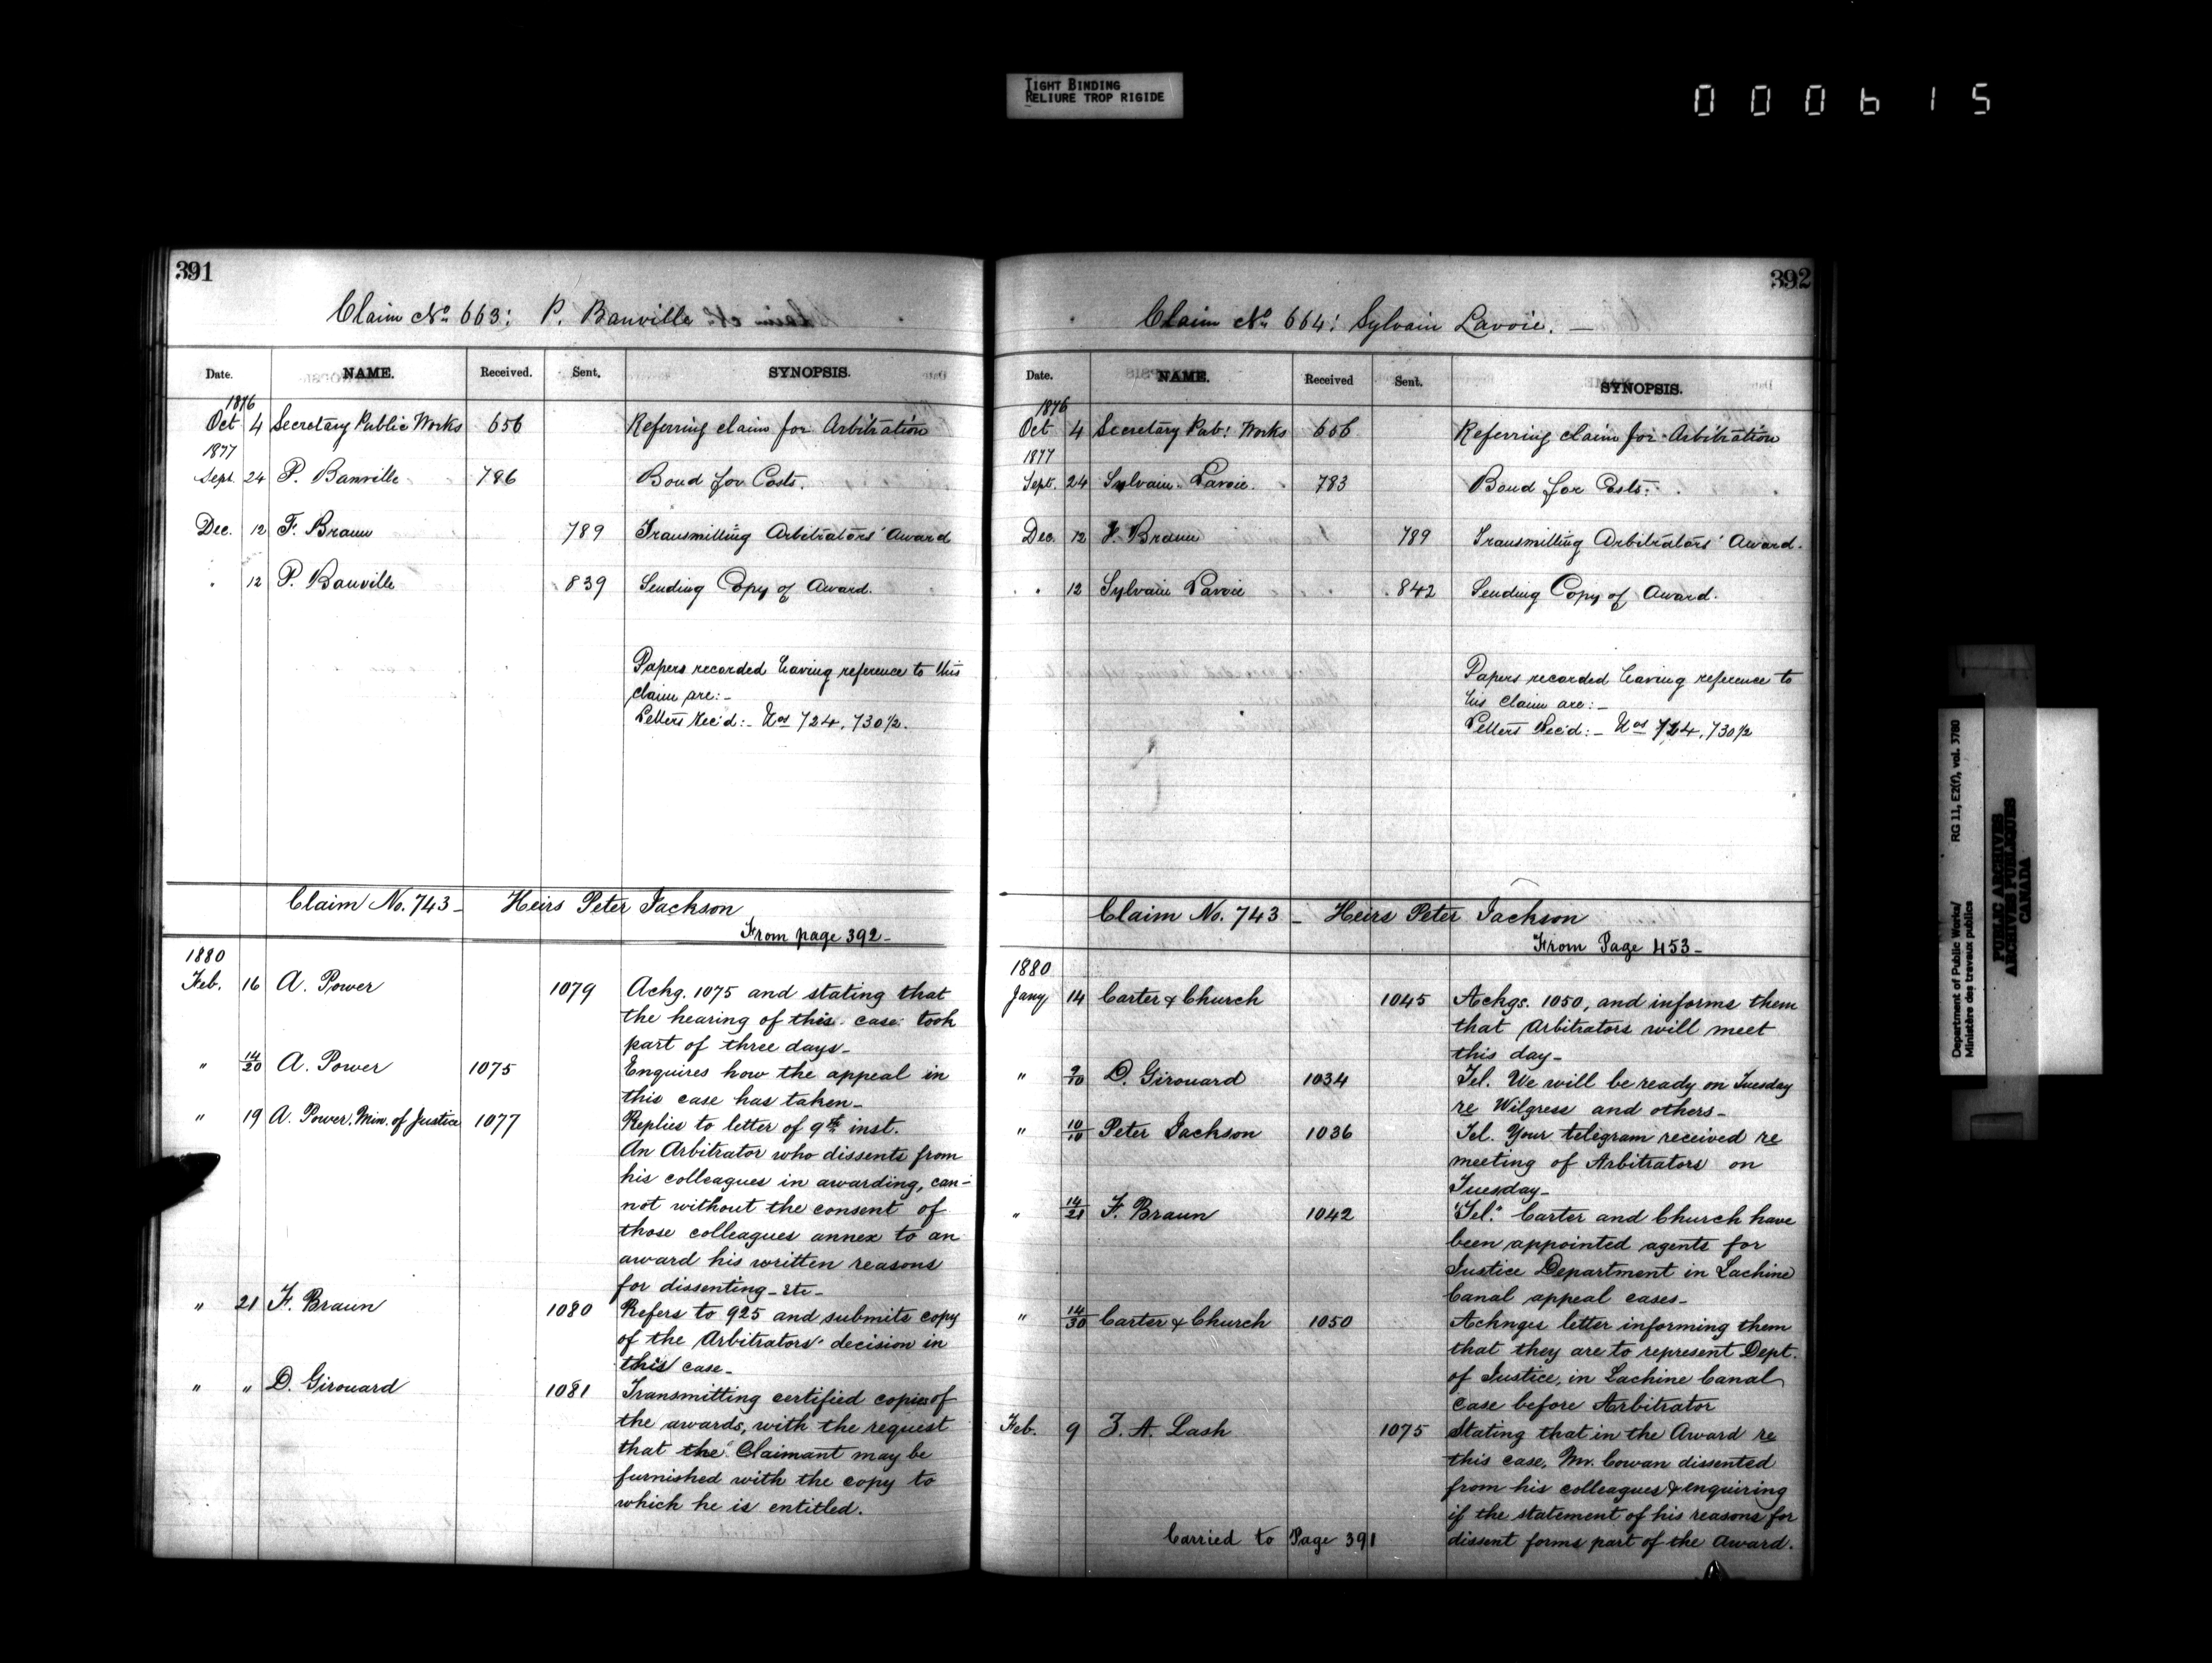 TIGHT BINDING
RELIURE TROP RIGIDE
000615
391
Claim No. 663: P. Banville
Date. NAME. Received. Sent. SYNOPSIS.
1876
Oct 4 Secretary Public Works 656 Referring claim for Arbitration
1877
Sept. 24 P. Banville 786 Bond for Costs.
Dec. 12 F. Braun 789 Transmitting Arbitrators' Award
" 12 P. Banville 839 Sending Copy of Award.
Papers recorded having reference to this
claim are:-
Letters Rec'd:- Nos 724, 730 1/2.
Claim No. 743- Heirs Peter Jackson
From page 392-
1880
Feb. 16 A. Power 1079 Ackg. 1075 and stating that
the hearing of this case took
part of three days-
" 14/20 A. Power 1075 Enquires how the appeal in
this case has taken-
" 19 A. Power, Min. of Justice 1077 Replies to letter of 9th inst.
An Arbitrator who dissents from
his colleagues in awarding, can-
not without the consent of
those colleagues annex to an
award his written reasons
for dissenting-etc-
" 21 F. Braun 1080 Refers to 925 and submits copy
of the Arbitrators' decision in
this case-
" " D. Girouard 1081 Transmitting certified copies of
the awards, with the request
that the Claimant may be
furnished with the copy to
which he is entitled.
392
Claim No. 664: Sylvain Lavoie. -
Date. NAME. Received Sent. SYNOPSIS.
1876
Oct 4 Secretary Pub: Works 656 Referring claim for Arbitration
1877
Sept. 24 Sylvain Lavoie. 783 Bond for Costs:
Dec. 12 F. Braun 789 Transmitting Arbitrators' Award.
" 12 Sylvain Lavoie 842 Sending Copy of Award.
Papers recorded having reference to
this claim are:-
Letters Rec'd:- Nos 724, 730 1/2
Claim No. 743 - Heirs Peter Jackson
From Page 453-
1880
Jany 14 Carter & Church 1045 Ackgs. 1050, and informs them
that Arbitrators will meet
this day-
" 9/10 D. Girouard 1034 Tel. We will be ready on Tuesday
re Wilgress and others-
" 10/10 Peter Jackson 1036 Tel. Your telegram received re
meeting of Arbitrators on
Tuesday-
" 14/21 F. Braun 1042 "Tel." Carter and Church have
been appointed agents for
Justice Department in Lachine
Canal appeal cases-
" 14/30 Carter & Church 1050 Acknges letter informing them
that they are to represent Dept.
of Justice, in Lachine Canal
case before Arbitrator
Feb. 9 Z. A. Lash 1075 Stating that in the Award re
this case, Mr. Cowan dissented
from his colleagues & enquiring
if the statement of his reasons for
dissent forms part of the Award.
Carried to Page 391
Department of Public Works/ RG 11, E2(f), vol. 3780
Ministère des travaux publics
PUBLIC ARCHIVES
ARCHIVES PUBLIQUES
CANADA